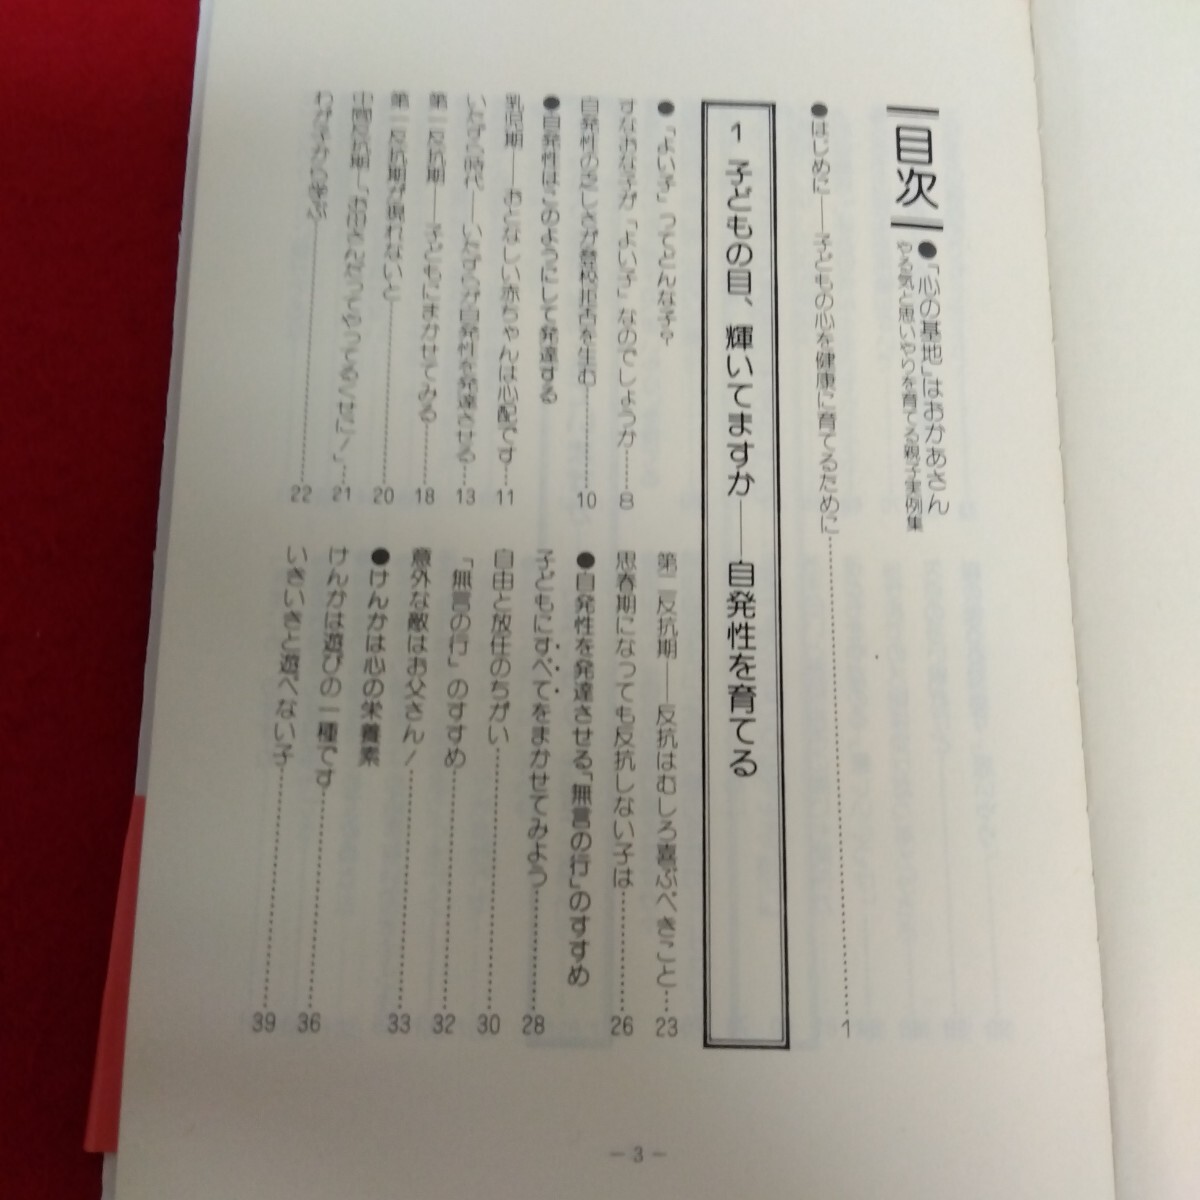 目次
●「心の基地」はおかあさん
やる気と思いやりを育てる親子実例集
●はじめに――子どもの心を健康に育てるために……1
1 子どもの目、輝いてますか――自発性を育てる
●「よい子」ってどんな子?
すなおな子が「よい子」なのでしょうか……8
自発性の乏しさが登校拒否を生む……10
●自発性はこのようにして発達する
乳児期――おとなしい赤ちゃんは心配です……11
いたずら時代――いたずらが自発性を発達させる……13
第一反抗期――子どもにまかせてみる……18
第一反抗期が現れないと……20
中間反抗期―「お母さんだってやってるくせに!」……21
わが子から学ぶ……22
第二反抗期――反抗はむしろ喜ぶべきこと…23
思春期になっても反抗しない子は……26
●自発性を発達させる「無言の行」のすすめ
子どもにすべてをまかせてみよう……28
自由と放任のちがい……30
「無言の行」のすすめ……32
意外な敵はお父さん!……33
●けんかは心の栄養素
けんかは遊びの一種です……36
いきいきと遊べない子……39
— 3 —